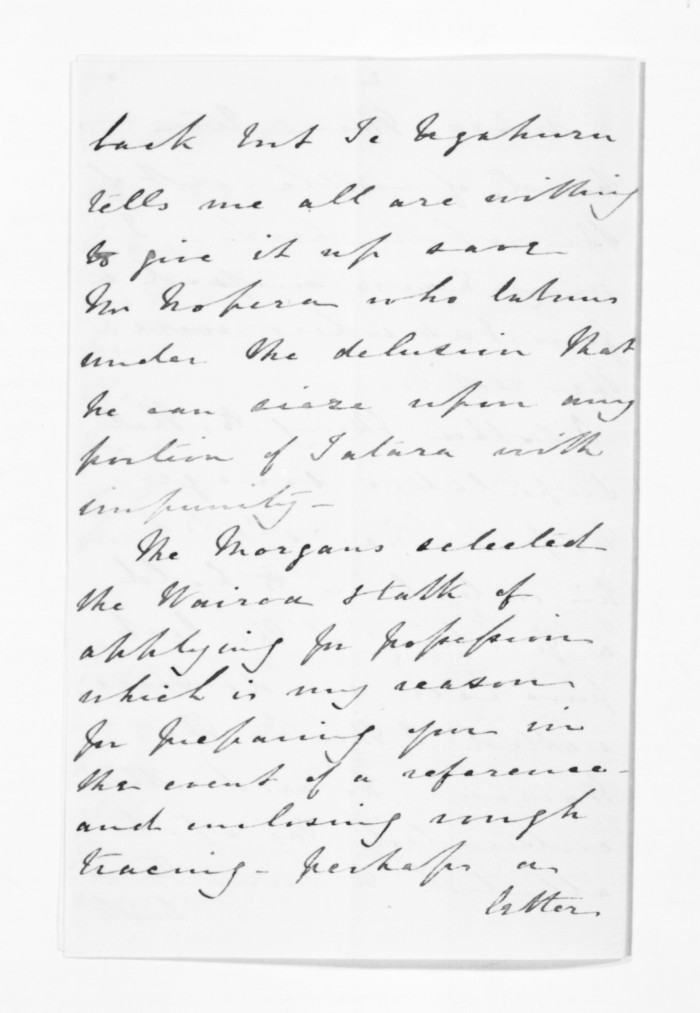 back but Te Ngahuru
tells me all are willing
to give it up save
Mr Nopera who labours
under the delusion that
he can sieze upon any
portion of Tatara with
impunity -
The Morgans selected
the Wairoa
applying for possession
which is my reason
for preparing you in
the event of a reference -
and enclosing rough
tracing - perhaps a
letter